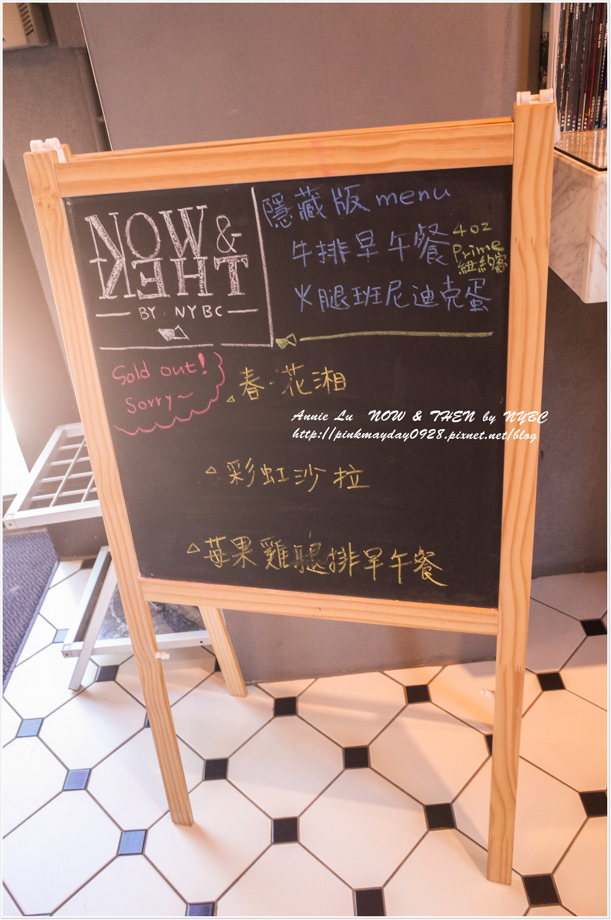 NOW &
THEN
BY · NYBC
隱藏版 menu
牛排早午餐
4oz
Prime
紐約客
火腿班尼迪克蛋
Sold out!
Sorry~
△春·花湘
Annie Lu NOW & THEN by NYBC
http://pinkmayday0928.pixnet.net/blog
△彩虹沙拉
△莓果雞腿排早午餐